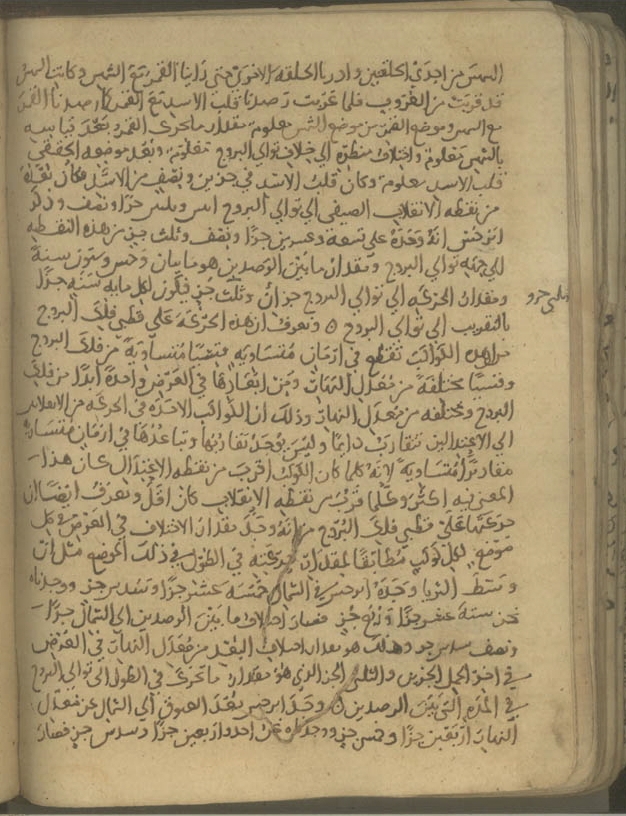 الشمس من احدى الحلقتين وادرنا الحلقة الاخرى حتى راينا القمر مع الشمس وكانت الشمس
قد قربت من الغروب فلما غربت رصدنا قلب الاسد مع القمر
مع الشمس وموضع القمر من موضع الشمس معلوم بمقدار ما تحرك القمر بعد قياسه
بالشمس معلوم واختلاف منظره الى خلاف توالي البروج معلوم وبعد موضعه الحقيقي
قلب الاسد معلوم وكان قلب الاسد في جزين ونصف من الاسد فكان بعده
من نقطه الانقلاب الصيفي الى توالي البروج اثنين وثلثين جزا ونصف وذكر
ابرخس انه وجده على تسعة وعشرين جزا ونصف وثلث جز من هذه النقطه
الى جهه توالي البروج ومقدار ما بين الرصدين هو مايتان وخمس وستون سنة
ومقدار الحركه الى توالي البروج جزان وثلث جز فيكون لكل مايه سنه جزا
بالتقريب الى توالي البروج ٥ وتعرف ان هذه الحركة على قطبي فلك البروج
هذه الكواكب تقطع في ازمان متساويه قسيا متساوية من فلك البروج
وقسيا مختلفة من معدل النهار ومن ابعادها في العرض واحدة ابدا من فلك
البروج ومختلفه من معدل النهار وذلك ان الكواكب الاخذه في الحركه من الانقلابين
الى الاعتدالين تتقارب دايما وليس يوجد تقاربها وتباعدها في ازمان متساوية
مقادير متساوية لانه كلما كان الكوكب اقرب من نقطه الاعتدال كان هذا
المعنى فيه اكثر وكلما قرب من نقطه الانقلاب كان اقل وتعرف ايضا ان
حركتها على قطبي فلك البروج من انه وجد مقدار الاختلاف في العرض في كل
موضع لكل كوكب مطابقا لمقدار حركته في الطول في ذلك الموضع مثل ان
وسط الثريا وجده ابرخس في الشمال خمسه عشر جزا وسدس جز ووجدناه
نحن ستة عشر جزا وربع جز فصار اختلاف ما بين الرصدين الى الشمال جزا
ونصف سدس جز وهذا هو مقدار اختلاف البعد من معدل النهار في العرض
في اخر الحمل الجزين والثلثي الجز الذي هو مقدار ما تحرك في الطول الى توالي البروج
في المدة التي بين الرصدين ٥ وجد ابرخس بعد العيوق الى الشمال عن معدل
النهار اربعين جزا وخمس جز ووجدناه نحن احدا واربعين جزا وسدس جز فصار
ثلثي جزو